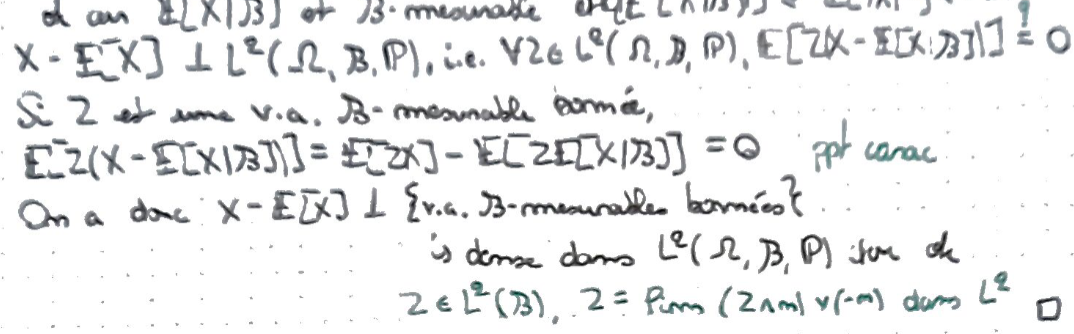 ok car E[X|B] est B-mesurable
X - E[X] ⊥ L²(Ω, B, P), i.e. ∀Z∈ L²(Ω, B, P), E[Z(X - E[X|B])] ?= 0
Si Z est une v.a. B-mesurable bornée,
E[Z(X - E[X|B])] = E[ZX] - E[ZE[X|B]] = 0 ppt carac.
On a donc X - E[X] ⊥ {v.a. B-mesurables bornées}
↳ dense dans L²(Ω, B, P) ok
Z ∈ L²(B), Z = lim (Z∧n) ∨ (-n) dans L² □